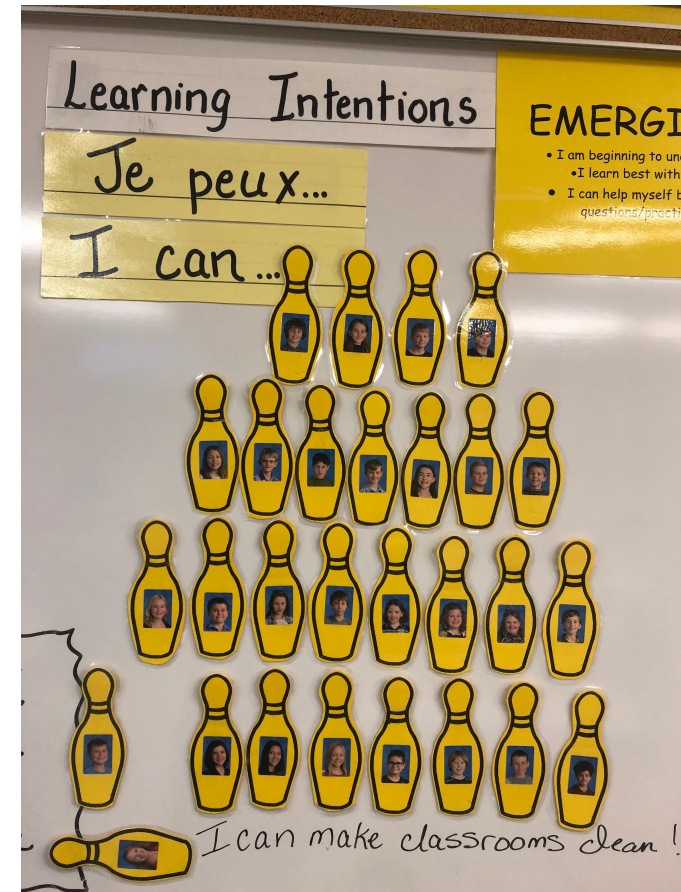 Learning Intentions
Je peux...
I can...
EMERGI
• I am beginning to un
•I learn best with
• I can help myself b
questions/practi
I can make classrooms clean!